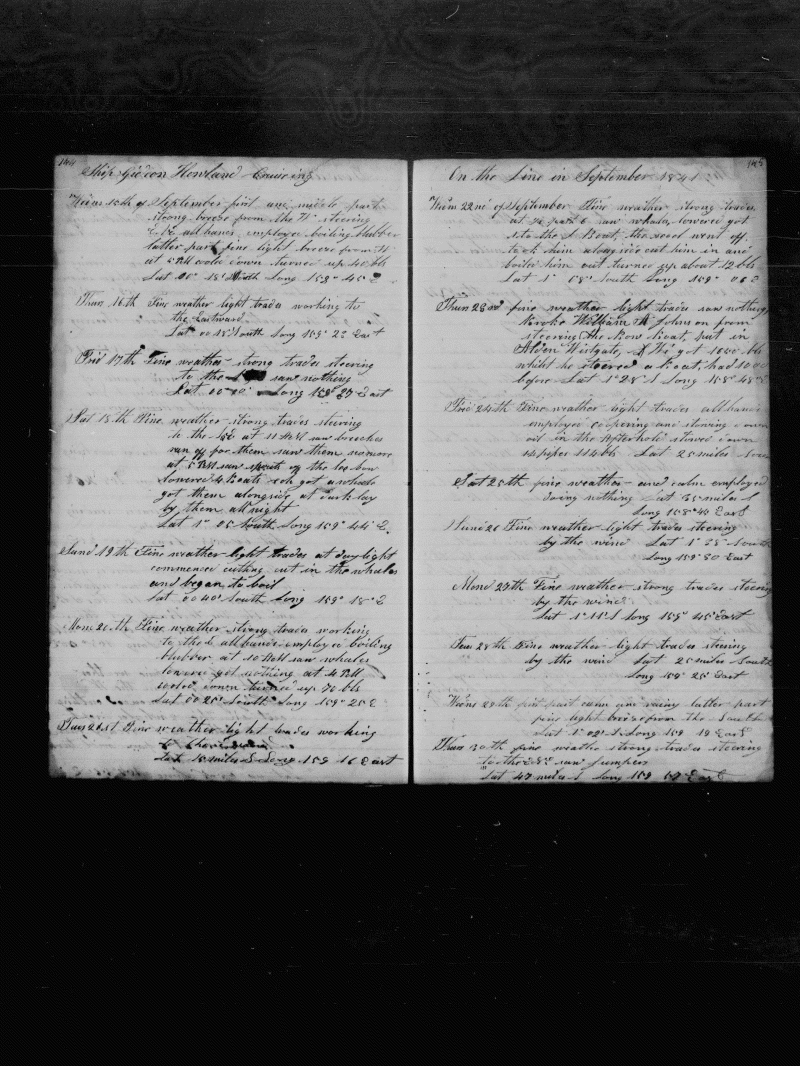 144
Ship Gideon Howland Cruising
Wedns 15th of September first and middle part
strong breeze from the steering
all hands employed boiling blubber
latter part fine light breeze from
at 5 PM cooled down turned up 45 bls
Lat 00° 18' Long 159° 45 E
Thurs 16th Fine weather light trades working to
the Eastward
Lat 00 15' South Long 159° 22 East
Frid 17th Fine weather strong trades steering
to the saw nothing
Lat 00 00' Long 159° 27 East
Sat 18th Fine weather strong trades steering
to the at 11 AM saw breaches
ran off for them saw them no more
at 5 PM saw spouts off the lee bow
lowered 4 Boats each got a whale
got them alongside at dark lay
by them all night
Lat 1° 05 South Long 159° 44' E.
Sund 19th Fine weather light trades at daylight
commenced cutting cut in the whales
and began to boil
Lat 00 40' South Long 159° 18' E
Mond 20th Fine weather strong trades working
to the E all hands employed boiling
blubber at 10 AM saw whales
lowered got nothing at 4 PM
cooled down turned up 70 bls
Lat 00 25' South Long 159° 25 E
Tues 21st Fine weather light trades working
to
Lat 15 miles S Long 159 16 East
145
On the Line in September 1841
Wedns 22nd of September Fine weather strong trades
at ½ past 6 saw whales, lowered got
the Boat, the went off
took him alongside cut him in and
boiled him out turned up about 12 bls
Lat 1° 08' South Long 159° 08 E
Thurs 23rd fine weather light trades saw nothing
broke William Johnson from
steering the Bow boat, put in
Alden Wistgate, He got 1020 bls
whilst he steered a boat, had 1000
before Lat 1° 28' S Long 158° 48' E
Frid 24th Fine weather light trades all hands
employed coopering and stowing down
oil in the Afterhold stowed down
114 bls Lat 25 miles
Sat 25th fine weather and calm employed
doing nothing Lat 35 miles S
Long 158° 48 East
Sund 26 Fine weather light trades steering
by the wind Lat 1° 38' South
Long 159° 30 East
Mond 27th Fine weather strong trades steering
by the wind
Lat 1° 11' S Long 159° 45' East
Tues 28th Fine weather light trades steering
by the wind Lat 25 miles South
Long 159° 25' East
Wedns 29th first part calm and rainy latter part
fine light breeze from the South
Lat 1° 02' S. Long 159 19 East
Thurs 30th fine weather strong trades steering
to the saw Jumpers
Lat 47 miles S Long 159 57 East